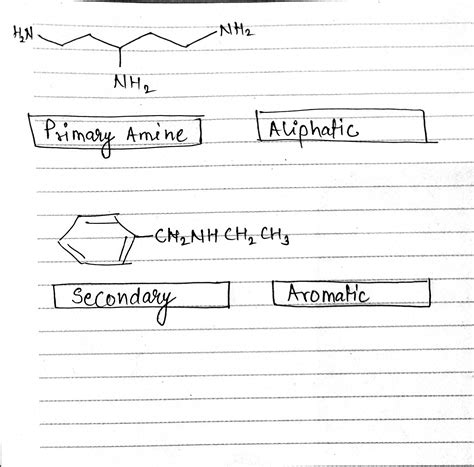 H₂N NH₂
NH₂
Primary Amine Aliphatic
CH₂NH CH₂ CH₃
Secondary Aromatic